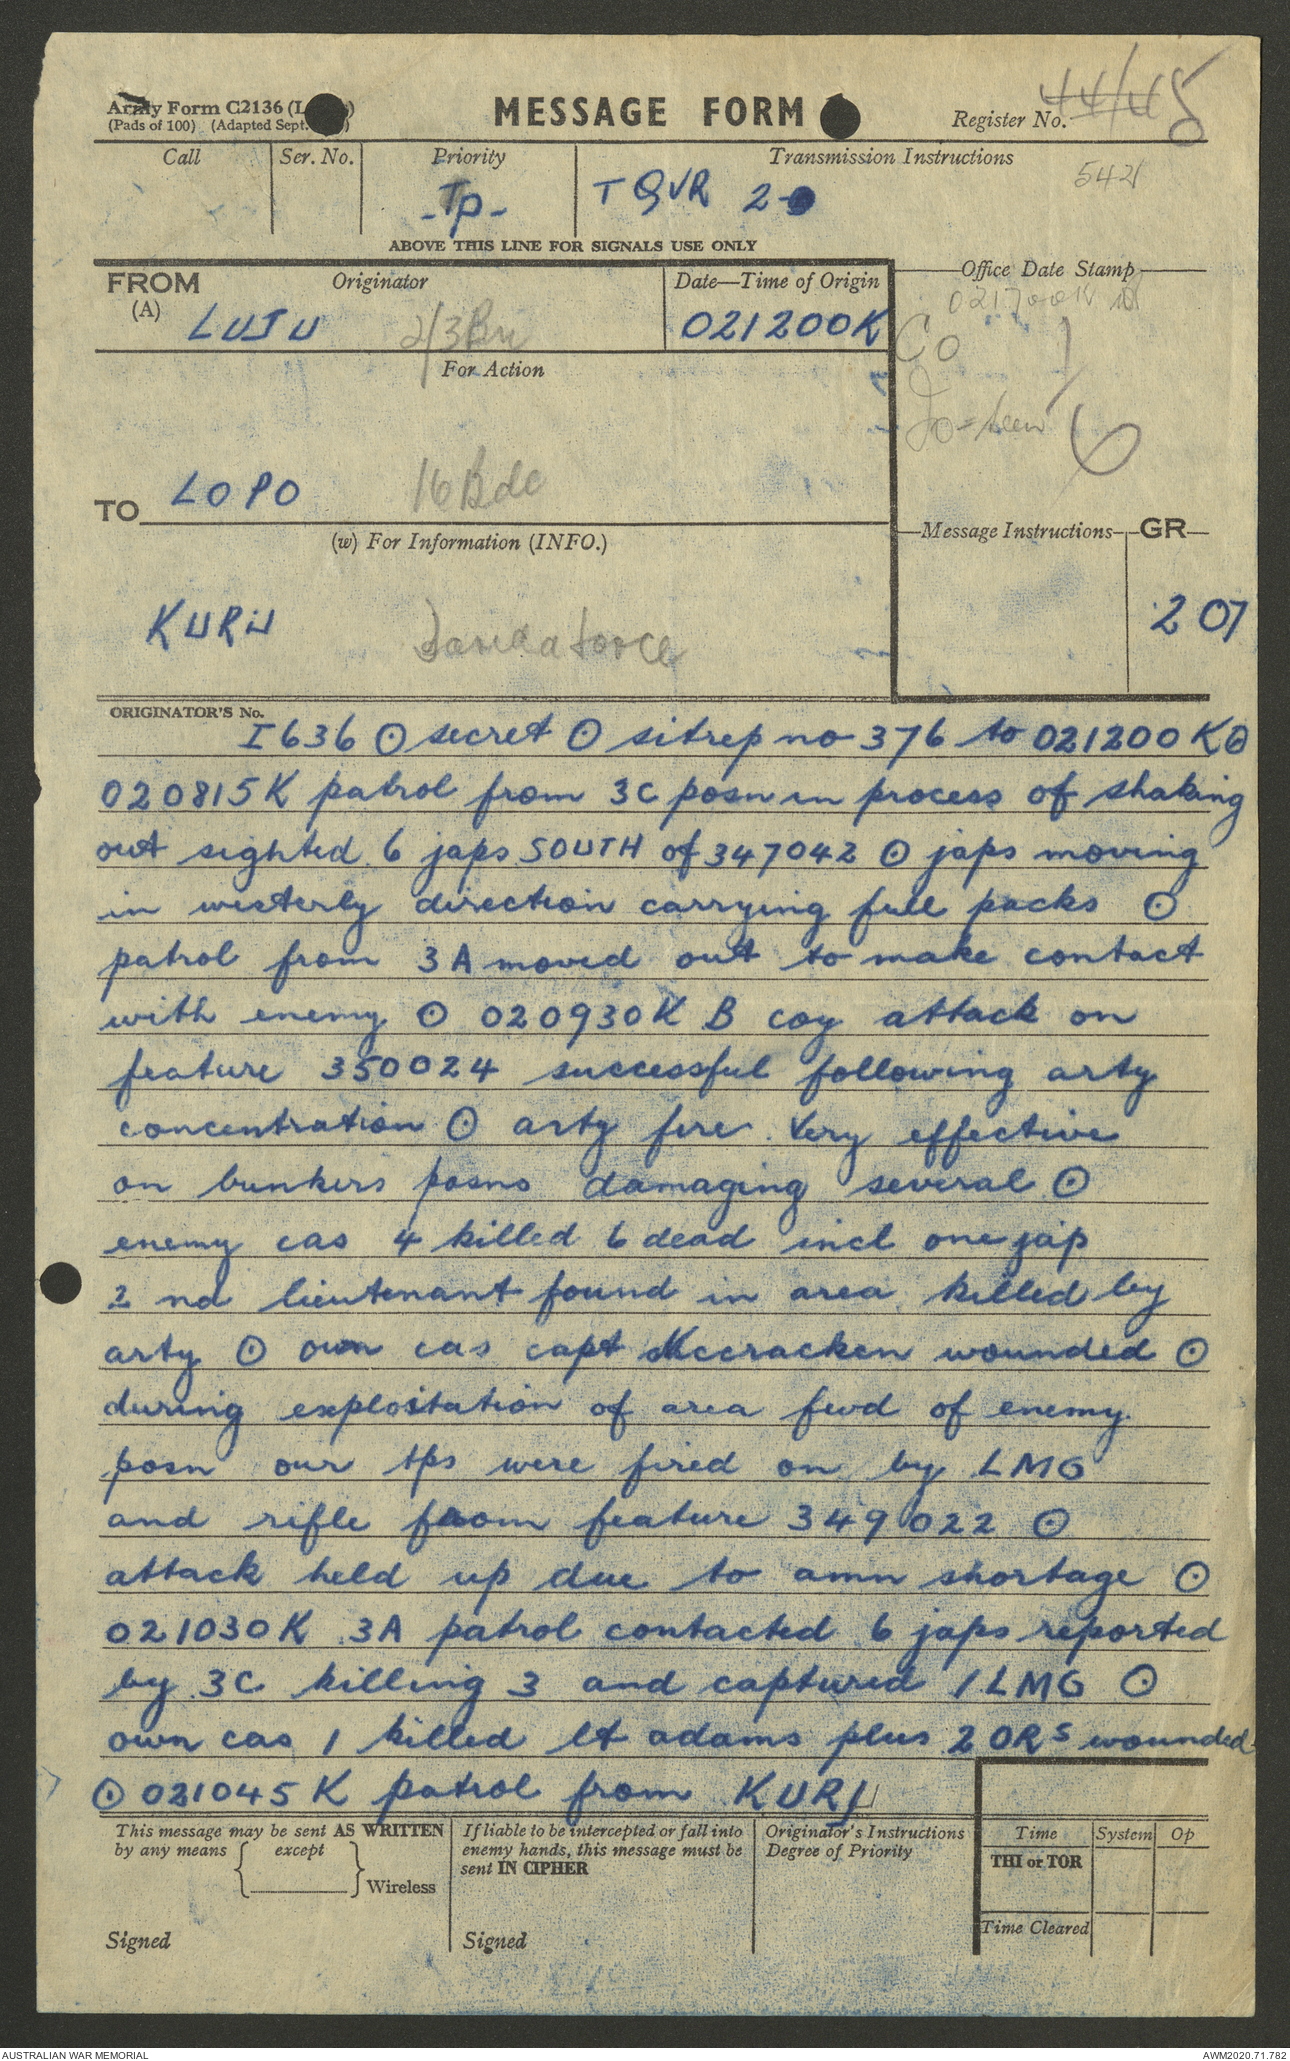 Army Form C2136 (L
(Pads of 100) (Adapted Sept.
MESSAGE FORM
Register No.
44/45
8
Call
Ser. No.
Priority
Transmission Instructions
542
-Tp-
T QVR 2-
ABOVE THIS LINE FOR SIGNALS USE ONLY
FROM
(A)
Originator
Date—Time of Origin
Office Date Stamp
LUJU 2/3 Bn
021200K
021700K
Co
Jo-seen
For Action
TO
LOPO 16 Bde
Message Instructions
GR
(w) For Information (INFO.)
207
KURU
ORIGINATOR'S No.
I636 ⊙ secret ⊙ sitrep no 376 to 021200K ⊙
020815K patrol from 3C posn in process of shaking
out sighted 6 japs SOUTH of 347042 ⊙ japs moving
in westerly direction carrying full packs ⊙
patrol from 3A moved out to make contact
with enemy ⊙ 020930K B coy attack on
feature 350024 successful following arty
concentration ⊙ arty fire very effective
on bunkers posns damaging several ⊙
enemy cas 4 killed 6 dead incl one jap
2 nd lieutenant found in area killed by
arty ⊙ own cas capt Mccracken wounded ⊙
during exploitation of area fwd of enemy
posn our tps were fired on by LMG
and rifle from feature 349022 ⊙
attack held up due to amn shortage ⊙
021030K 3A patrol contacted 6 japs reported
by 3C killing 3 and captured 1 LMG ⊙
own cas 1 killed lt adams plus 2 ORS wounded
⊙ 021045K patrol from KURU
This message may be sent AS WRITTEN
by any means except
Wireless
Signed
If liable to be intercepted or fall into
enemy hands, this message must be
sent IN CIPHER
Signed
Originator's Instructions
Degree of Priority
Time
System
Op
THI or TOR
Time Cleared
AUSTRALIAN WAR MEMORIAL
AWM2020.71.782